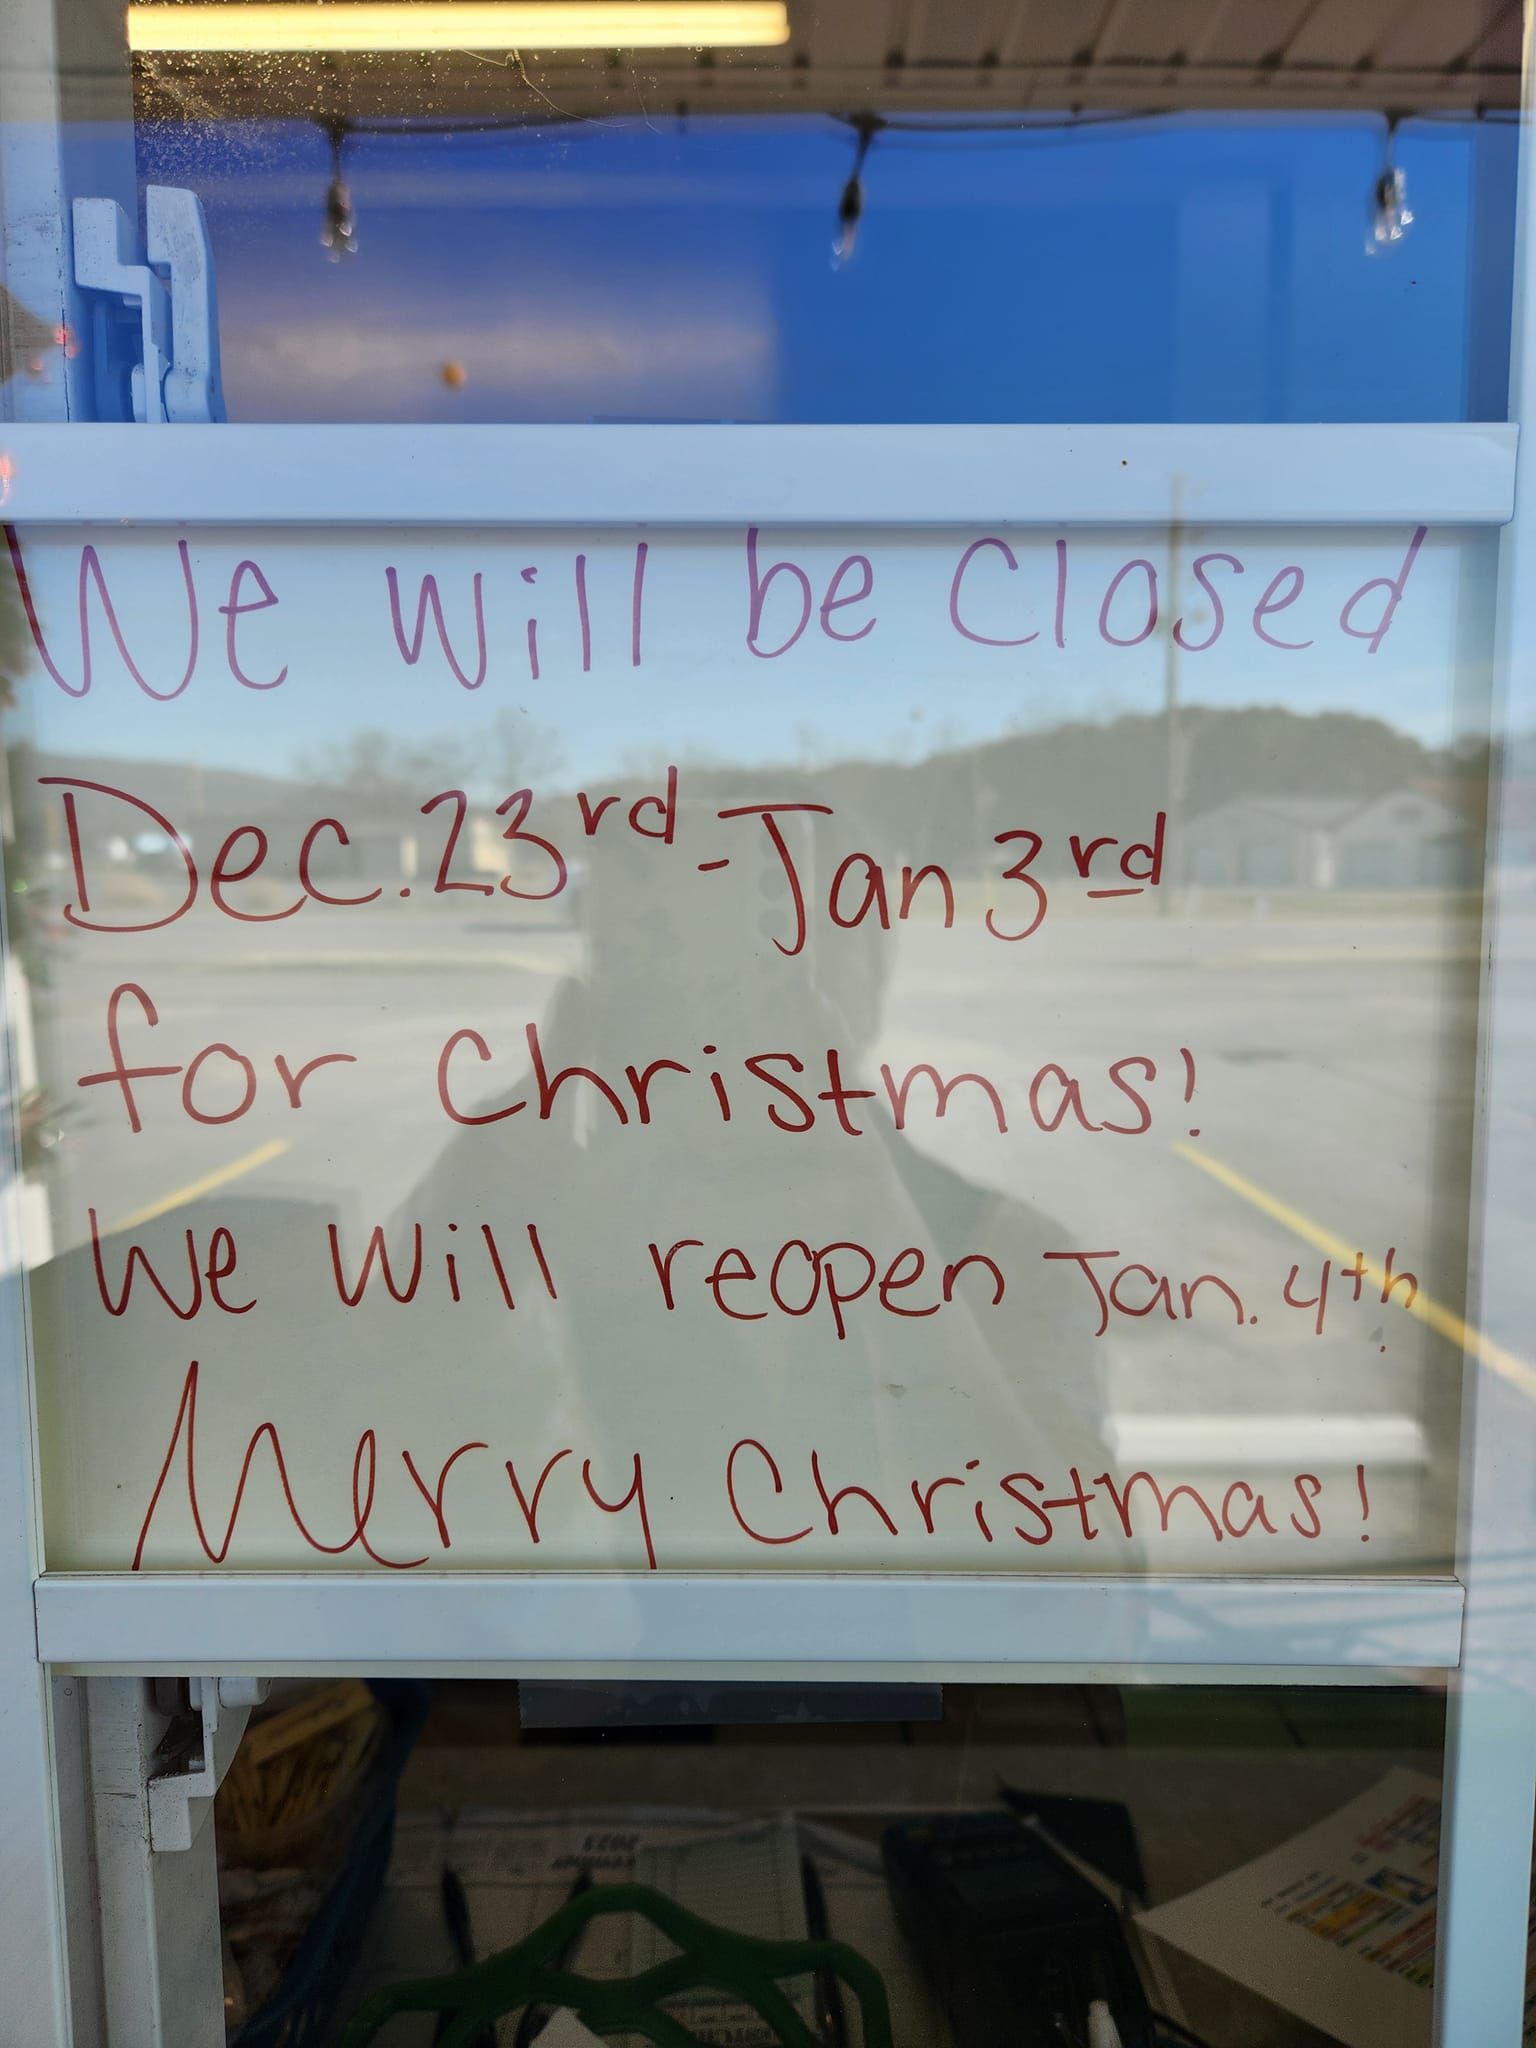 We will be closed
Dec. 23rd - Jan 3rd
for Christmas!
We will reopen Jan. 4th
Merry Christmas!